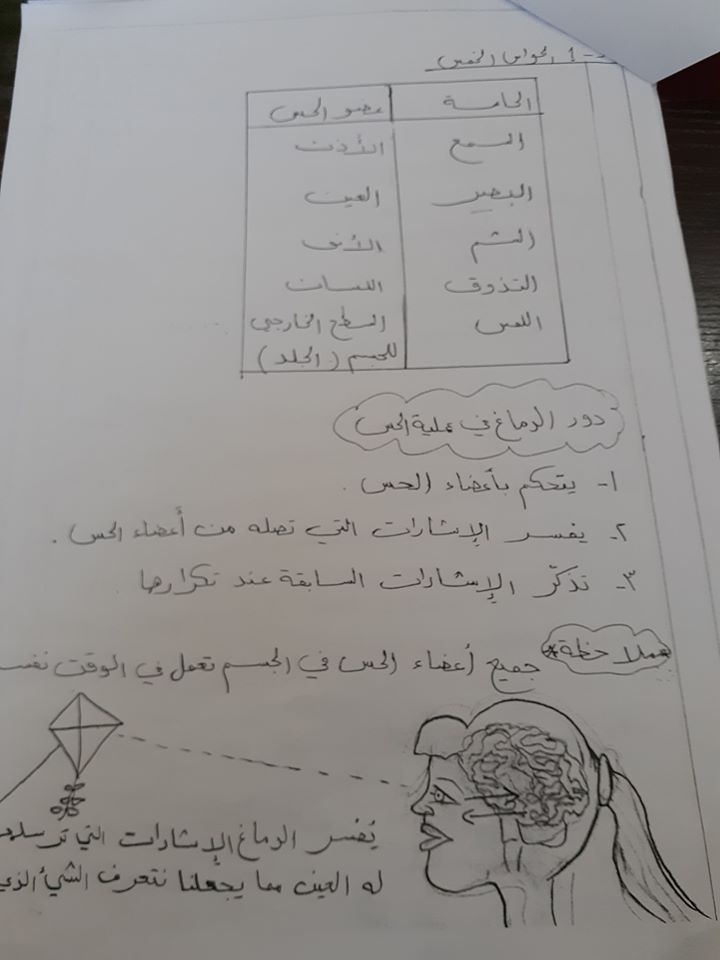 1- الحواس الخمس
الحاسة عضو الحس
السمع الأذن
البصر العين
الشم الأنف
التذوق اللسان
اللمس السطح الخارجي
للجسم (الجلد)
دور الدماغ في عملية الحس
١- يتحكم بأعضاء الحس .
٢- يفسر الإشارات التي تصله من أعضاء الحس .
٣- تذكّر الإشارات السابقة عند تكرارها
*ملاحظة* جميع أعضاء الحس في الجسم تعمل في الوقت
يُفسر الدماغ الإشارات التي
له العين مما يجعلنا نتعرف الشيء